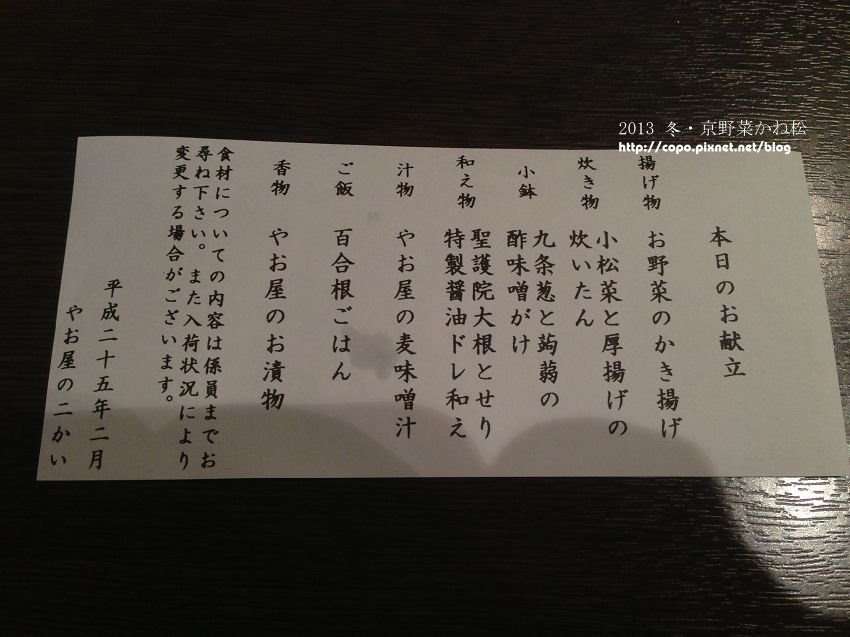 2013 冬・京野菜かね松
http://copo.pixnet.net/blog
本日のお献立
揚げ物 お野菜のかき揚げ
炊き物 小松菜と厚揚げの
炊いたん
小鉢 九条葱と蒟蒻の
酢味噌がけ
和え物 聖護院大根とせり
特製醤油ドレ和え
汁物 やお屋の麦味噌汁
ご飯 百合根ごはん
香物 やお屋のお漬物
食材についての内容は係員までお
尋ね下さい。また入荷状況により
変更する場合がございます。
平成二十五年二月
やお屋の二かい